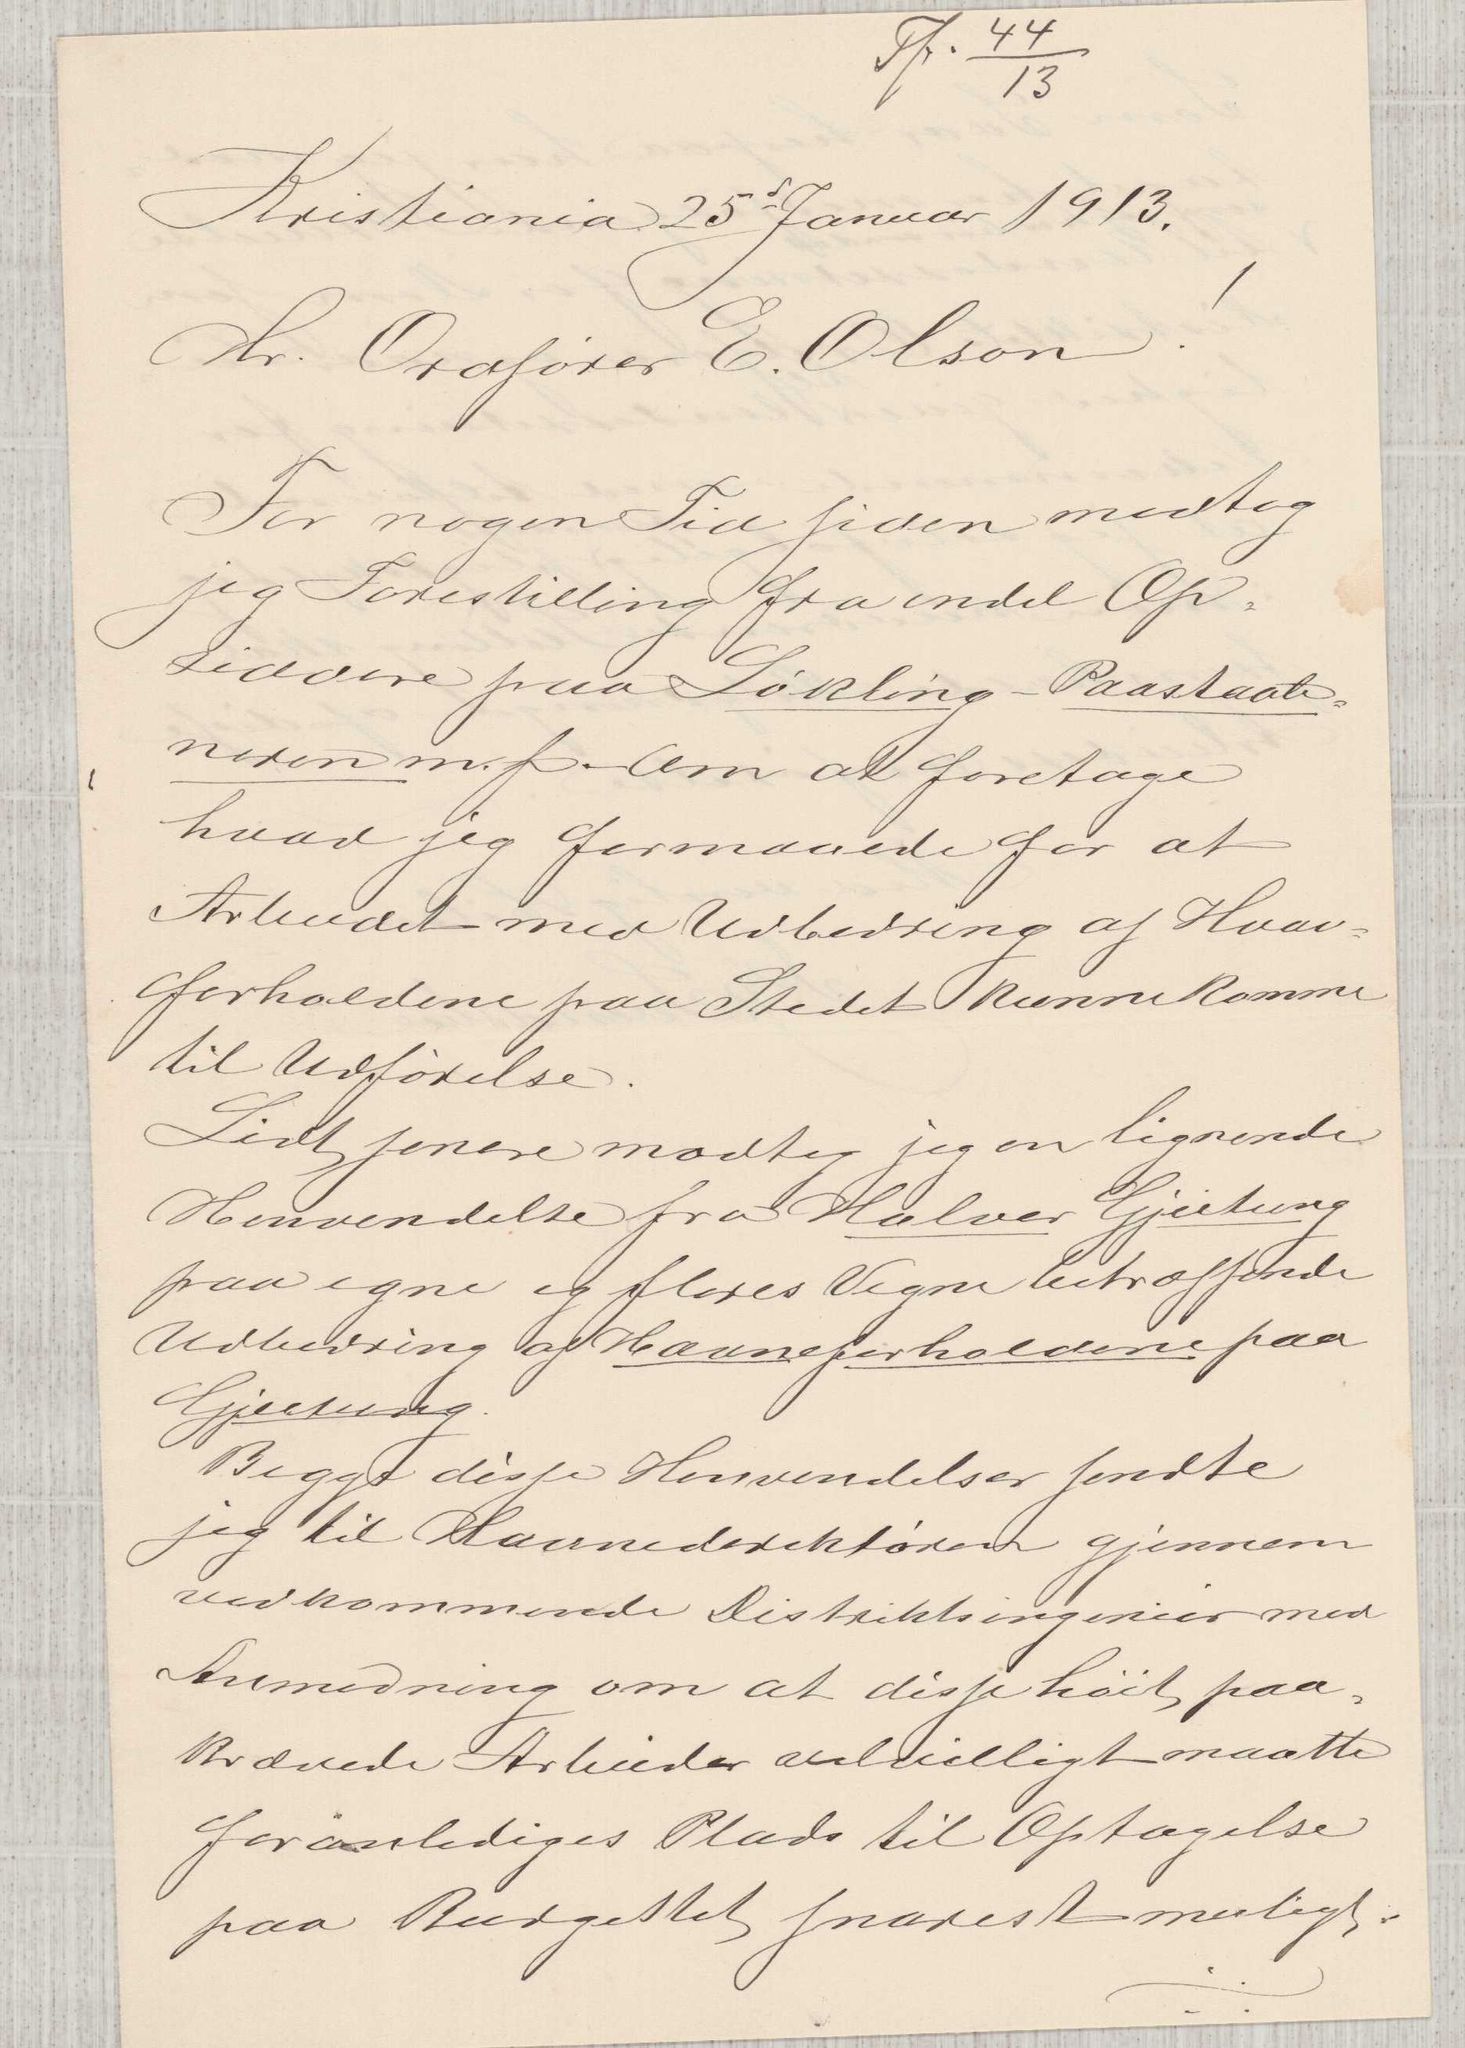 44
13
Kristiania 25 Januar 1913.
Hr. Ordfører E. Olson!
For nogen Tid siden modtog
jeg Forestilling fra endel Op-
siddere paa Løkling-
m. fl. om at foretage
hvad jeg formaaede for at
Arbeidet med Udbedring af Havn-
forholdene paa Stedet kunne komme
til Udførelse.
Lidt senere modtog jeg en lignende
Henvendelse fra Halvor Gjeitung
paa egne og fleres Vegne betræffende
Udbedring af Havneforholdene paa
Gjeitung.
Begge disse Henvendelser sendte
jeg til Havnedirektøren gjennem
vedkommende Distriktsingeniør med
Anmodning om at disse høit paa-
krævede Arbeider velvilligt maatte
foranlediges Plads til Optagelse
paa Budgettet snarest muligt.